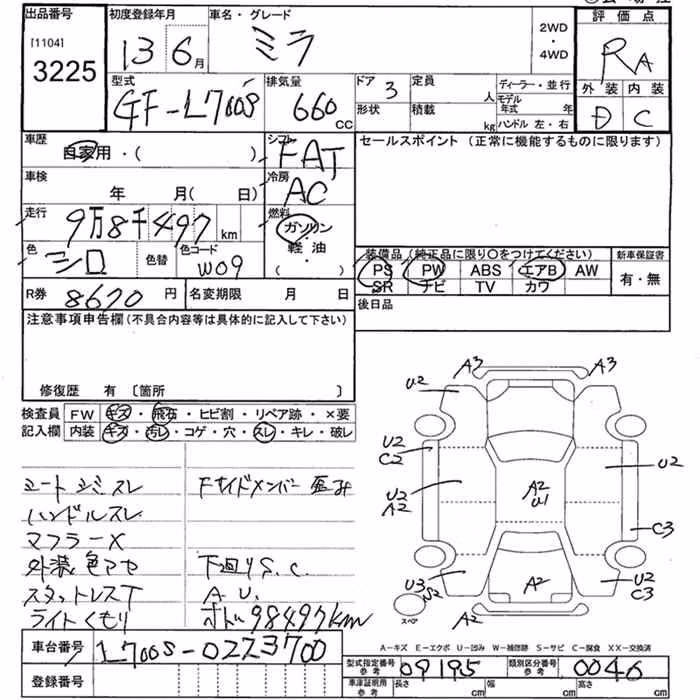 出品番号
[1104]
3225
初度登録年月
13 6月
車名・グレード
ミラ
2WD
・
4WD
評価点
RA
外装 内装
D C
型式
GF-L700S
排気量
660 CC
ドア 3
定員 人
形状
積載 kg
ディーラー・並行
モデル年式 年
ハンドル 左・右
車歴
自家用・( )
シフト
FAT
車検
年 月( 日)
冷房
AC
走行
9万8千497 km
燃料
ガソリン
軽油
・
( )
色
シロ
色替
色コード
W09
R券 8670 円
名変期限 月 日
セールスポイント (正常に機能するものに限ります)
装備品 (純正品に限り○をつけてください)
PS PW ABS エアB AW
SR ナビ TV カワ
新車保証書
有・無
後日品
注意事項申告欄(不具合内容等は具体的に記入して下さい)
修復歴 有 〔箇所 〕
検査員 FW キズ・飛石・ヒビ割・リペア跡・×要
記入欄 内装 キズ・汚レ・コゲ・穴・スレ・キレ・破レ
シート シミ スレ
ハンドルスレ
マフラーX
外装色アセ
スタットレスT
ライトくもり
Fサイドメンバー 歪み
下廻りS.C.
A.U.
メーター98497km
A3 A3
U2
U2
C2
U2
U2
A2
A2
U1
C3
U3
S2
A2
U2
C3
スペア
A2
A-キズ E-エクボ U-凹み W-補修跡 S-サビ C-腐食 XX-交換済
車台番号 L700S-0223700
登録番号
型式指定番号
参考
09195
類別区分番号
参考
0046
車庫証明用
参考
長さ cm
幅 cm
高さ cm